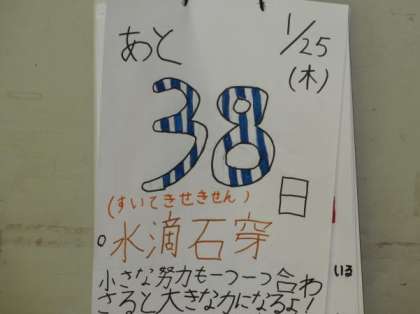 あと
1/25
(木)
38
日
(すいてきせきせん)
。水滴石穿
小さな努力も一つ一つ合わ
さると大きな力になるよ!
いる